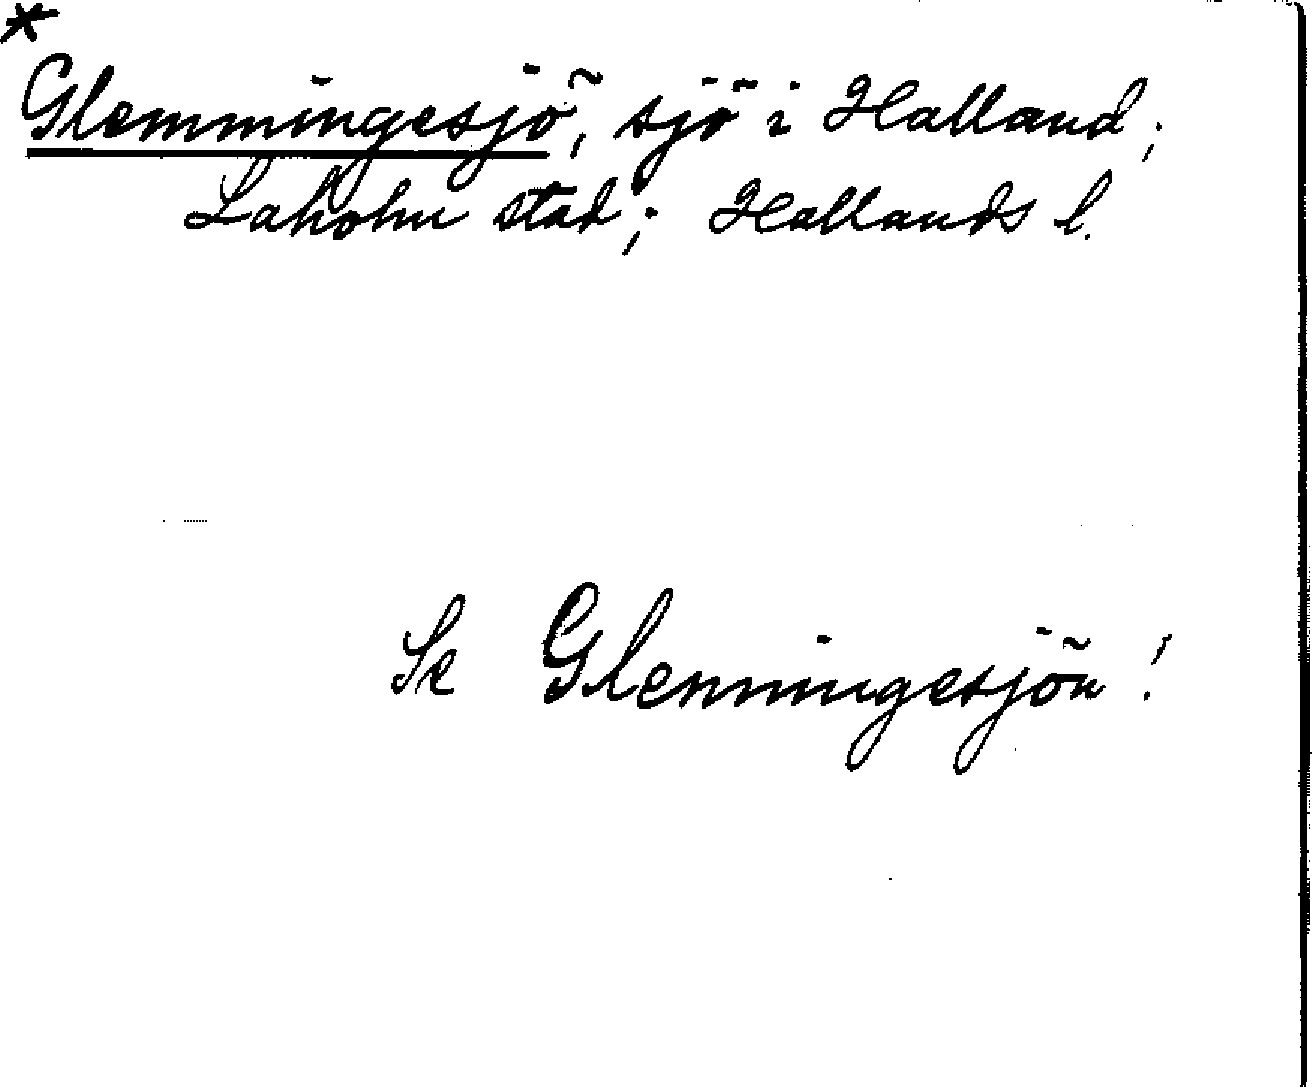 *
Glemmingesjö, sjö i Halland;
Laholm stad; Hallands l.
Se Glemmingesjön!